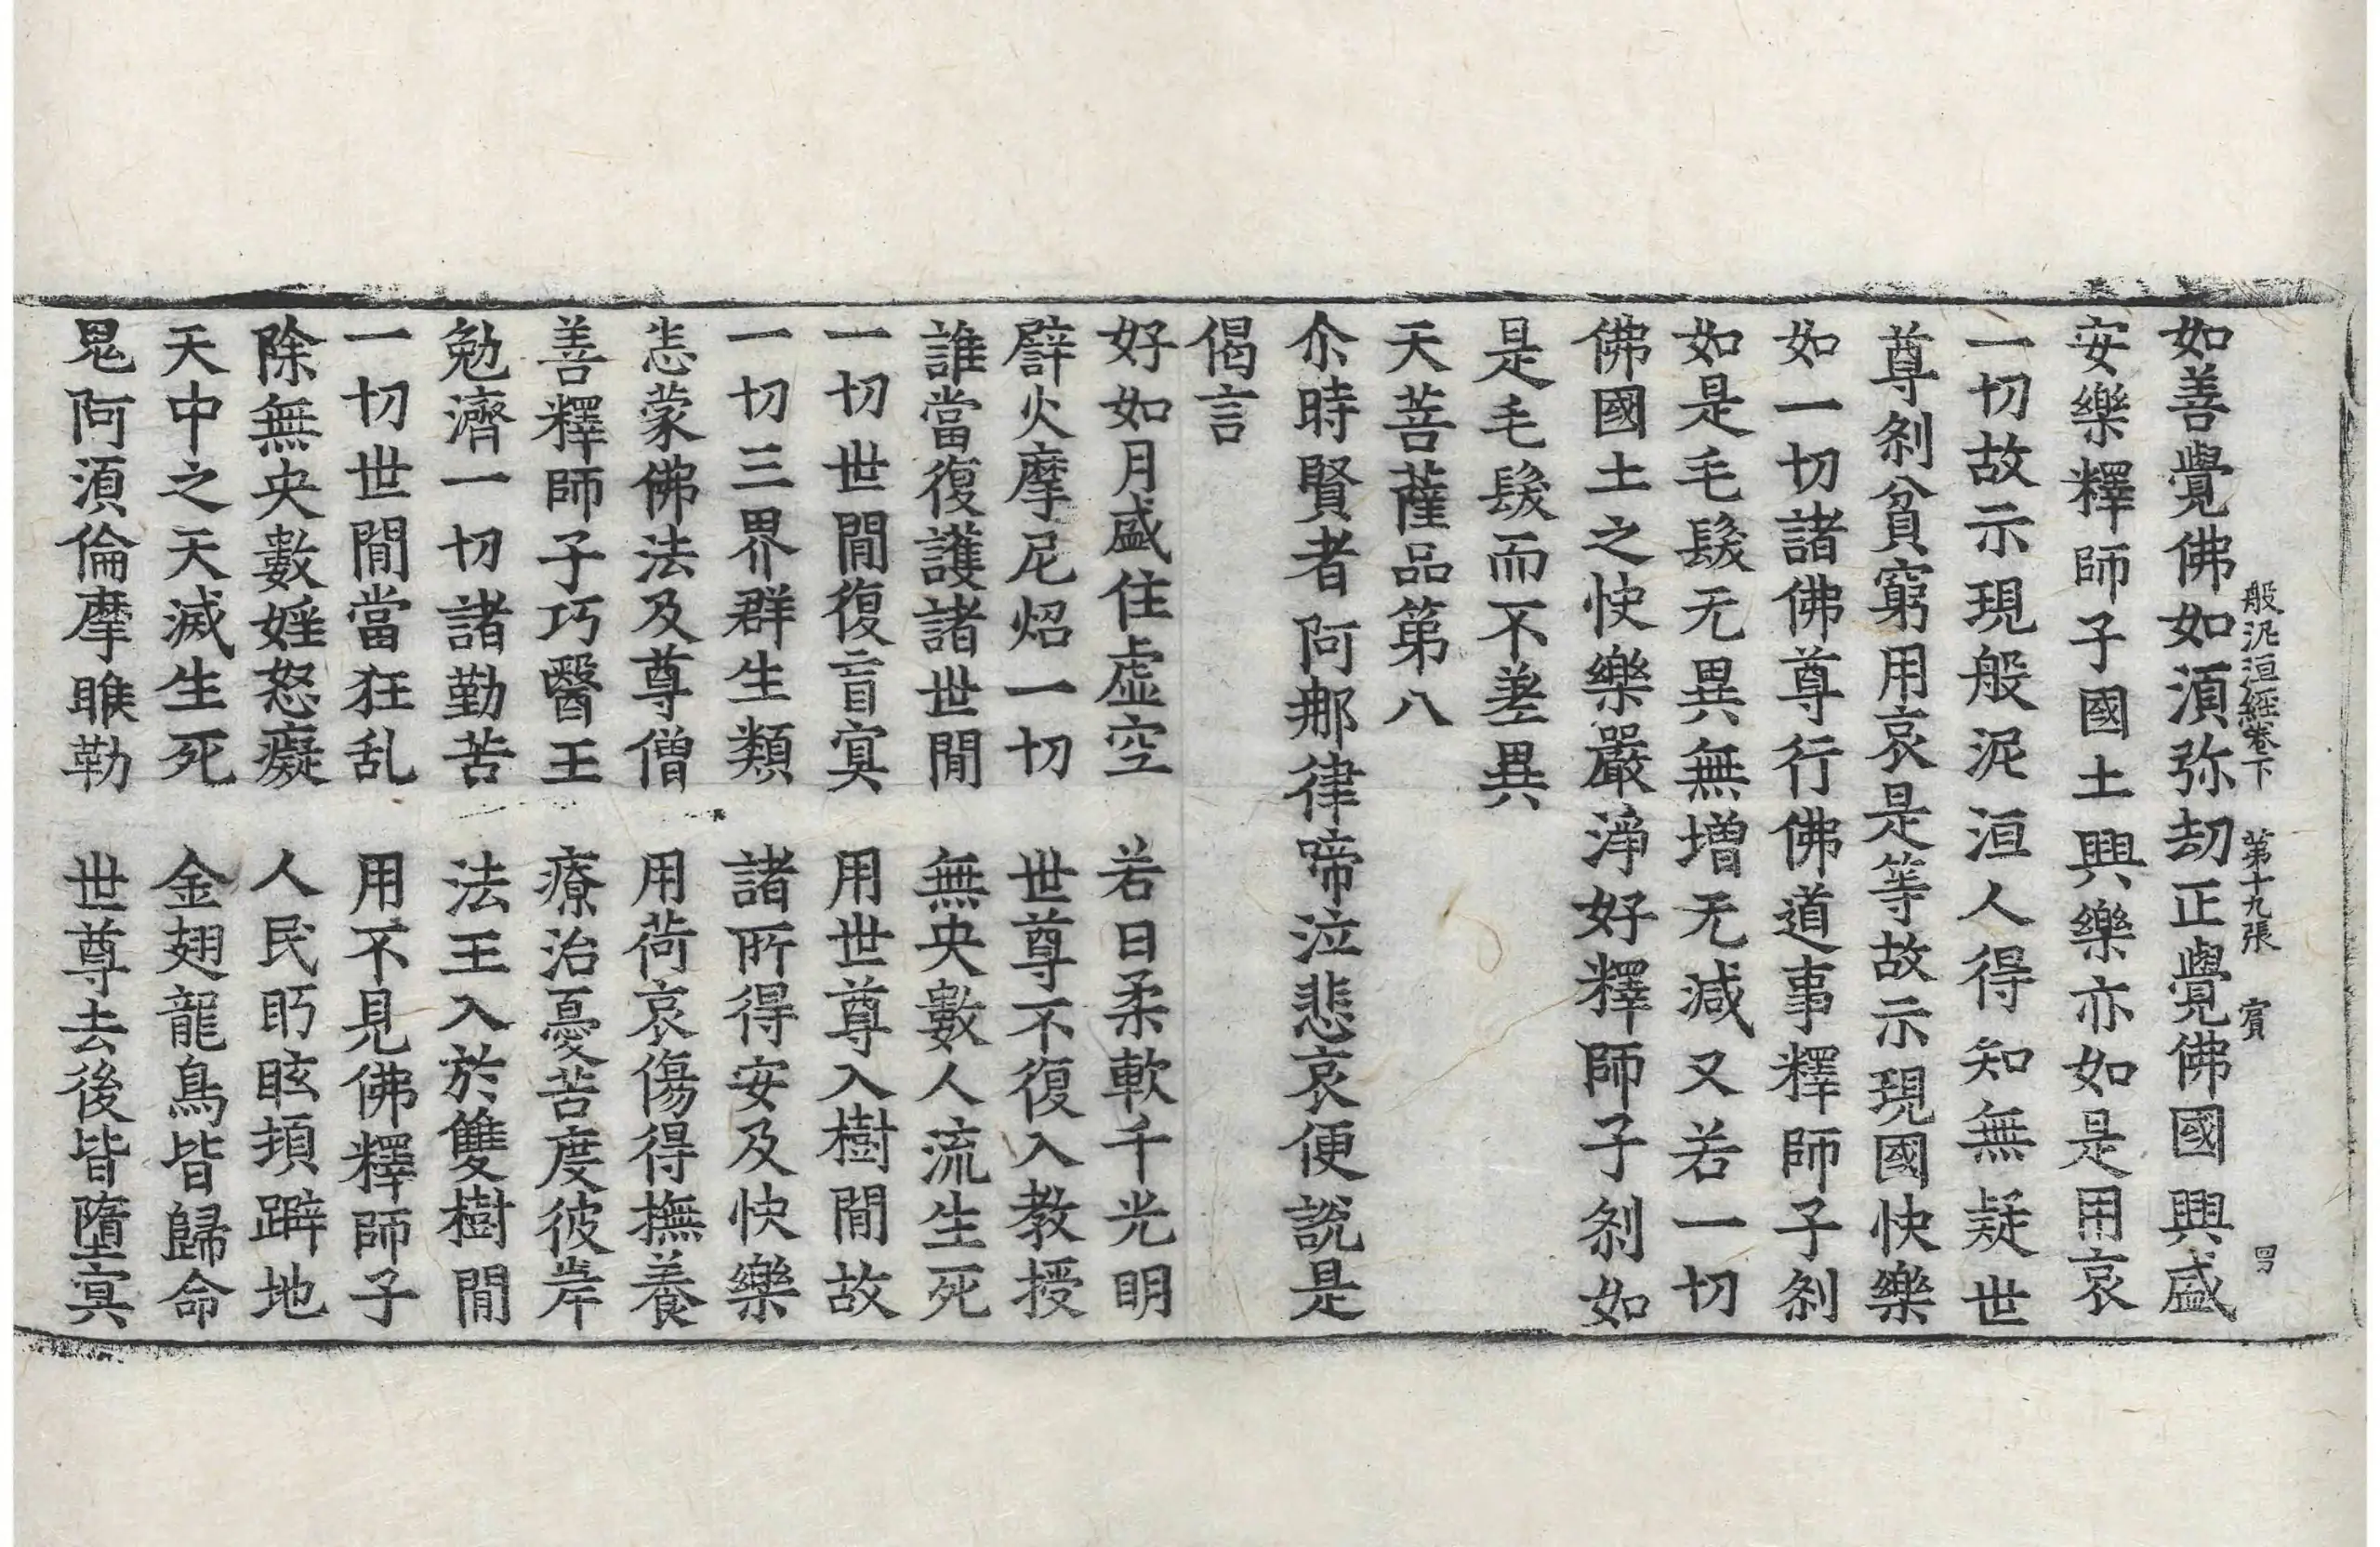 般泥洹經卷下　第十九張　賓
如善覺佛如湏弥劫正覺佛國興盛
安樂釋師子國土興樂亦如是用哀
一切故示現般泥洹人得知無疑世
尊剎貧窮用哀是等故示現國快樂
如一切諸佛尊行佛道事釋師子剎
如是毛髮无異無增无減又若一切
佛國土之快樂嚴淨好釋師子剎如
是毛髮而不差異
天菩薩品第八
尒時賢者阿那律啼泣悲哀便說是
偈言
好如月盛住虛空　若日柔軟千光明
譬火摩尼炤一切　世尊不復入教授
誰當復護諸世閒　無央數人流生死
一切世閒復盲冥　用世尊入樹閒故
一切三界群生類　諸所得安及快樂
恙蒙佛法及尊僧　用荷哀傷得撫養
善釋師子巧醫王　療治憂苦度彼岸
勉濟一切諸勤苦　法王入於雙樹閒
一切世閒當狂乱　用不見佛釋師子
除無央數婬怒癡　人民眄眩頓躃地
天中之天滅生死　金翅龍鳥皆歸命
鬼阿湏倫摩睺勒　世尊去後皆墮冥